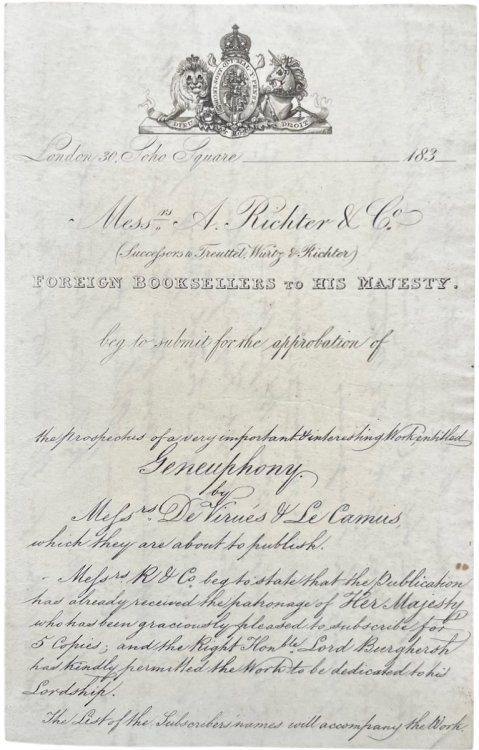 HONI SOIT QUI MAL Y PENSE
DIEU ET MON DROIT
London 30, Soho Square 183
Mess.rs A. Richter & Co.
(Successors to Treuttel, Würtz & Richter)
FOREIGN BOOKSELLERS TO HIS MAJESTY.
beg to submit for the approbation of
the prospectus of a very important & interesting Work, entitled
Geneuphony.
by
Messrs. De Virués & Le Camus,
which they are about to publish.
Messrs R & Co. beg to state that the Publication
has already received the patronage of Her Majesty
who has been graciously pleased to subscribe for
5 Copies; and the Right Honble. Lord Burghersh
has kindly permitted the Work to be dedicated to his
Lordship.
The List of the Subscribers names will accompany the Work.